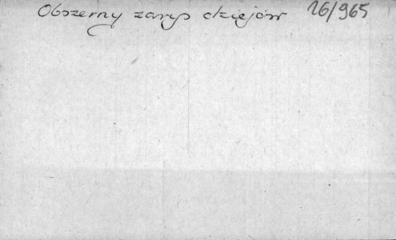 Obszerny zarys dziejów 16/965